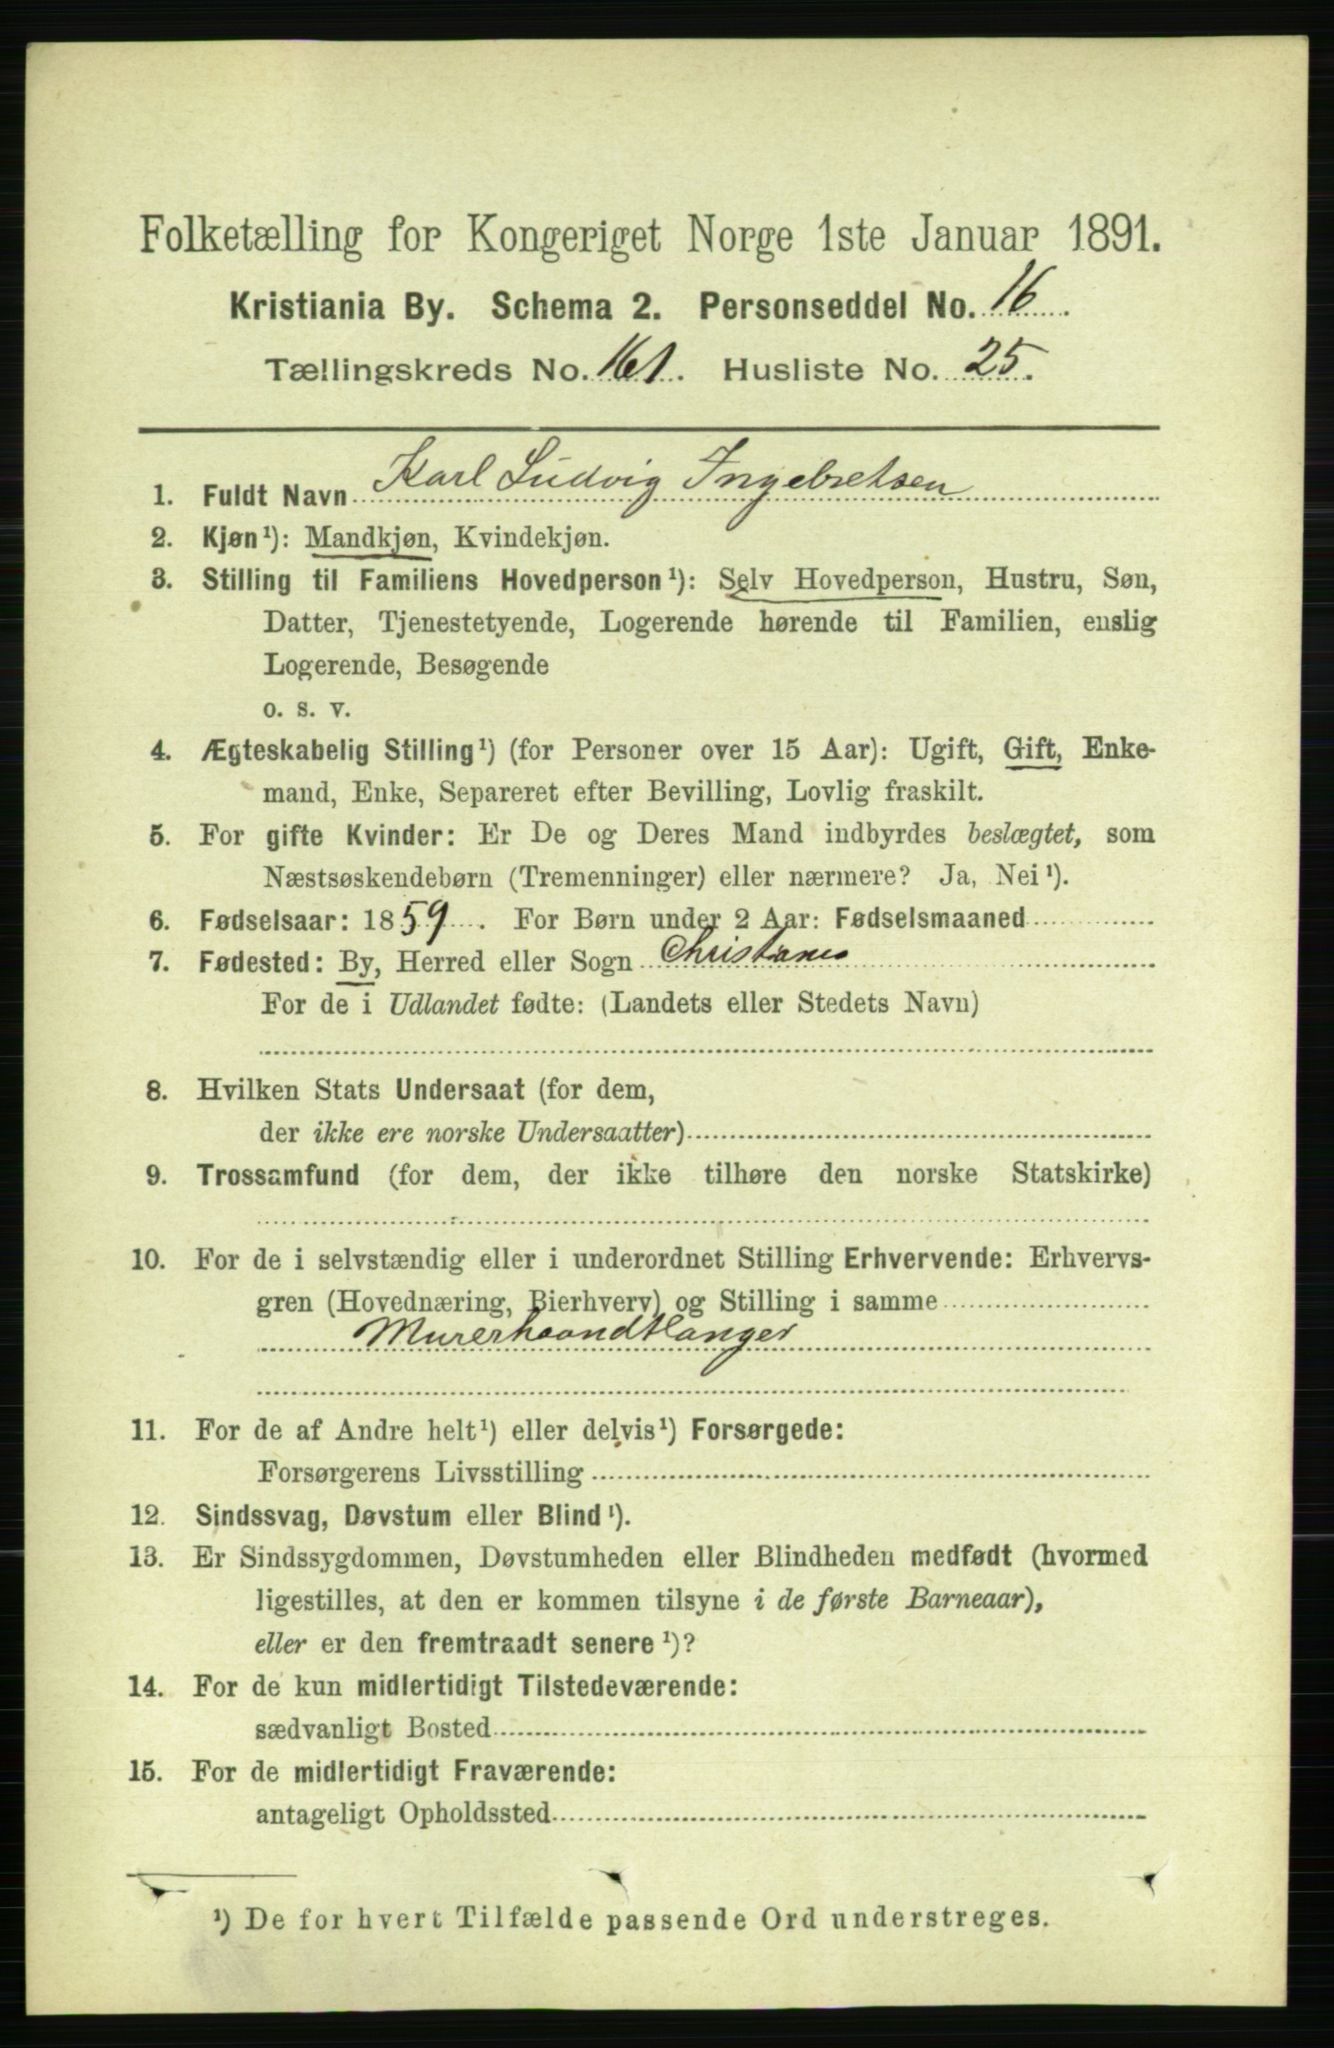 Folketælling for Kongeriget Norge 1ste Januar 1891.
Kristiania By. Schema 2. Personseddel No. 16.
Tællingskreds No. 161. Husliste No. 25.
1. Fuldt Navn Karl Ludvig Ingebretsen
2. Kjøn¹): Mandkjøn, Kvindekjøn.
3. Stilling til Familiens Hovedperson¹): Selv Hovedperson, Hustru, Søn,
Datter, Tjenestetyende, Logerende hørende til Familien, enslig
Logerende, Besøgende
o. s. v.
4. Ægteskabelig Stilling¹) (for Personer over 15 Aar): Ugift, Gift, Enke-
mand, Enke, Separeret efter Bevilling, Lovlig fraskilt.
5. For gifte Kvinder: Er De og Deres Mand indbyrdes beslægtet, som
Næstsøskendebørn (Tremenninger) eller nærmere? Ja, Nei¹).
6. Fødselsaar: 1859. For Børn under 2 Aar: Fødselsmaaned
7. Fødested: By, Herred eller Sogn Christania
For de i Udlandet fødte: (Landets eller Stedets Navn)
8. Hvilken Stats Undersaat (for dem,
der ikke ere norske Undersaatter)
9. Trossamfund (for dem, der ikke tilhøre den norske Statskirke)
10. For de i selvstændig eller i underordnet Stilling Erhvervende: Erhvervs-
gren (Hovednæring, Bierhverv) og Stilling i samme
Murerhaandtlanger
11. For de af Andre helt¹) eller delvis¹) Forsørgede:
Forsørgerens Livsstilling
12. Sindssvag, Døvstum eller Blind¹).
13. Er Sindssygdommen, Døvstumheden eller Blindheden medfødt (hvormed
ligestilles, at den er kommen tilsyne i de første Barneaar),
eller er den fremtraadt senere¹)?
14. For de kun midlertidigt Tilstedeværende:
sædvanligt Bosted
15. For de midlertidigt Fraværende:
antageligt Opholdssted
¹) De for hvert Tilfælde passende Ord understreges.